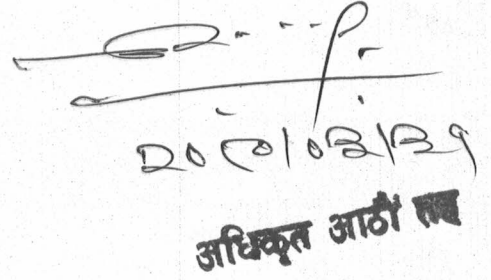 २०८०|०३|३१
अधिकृत आठौं तह